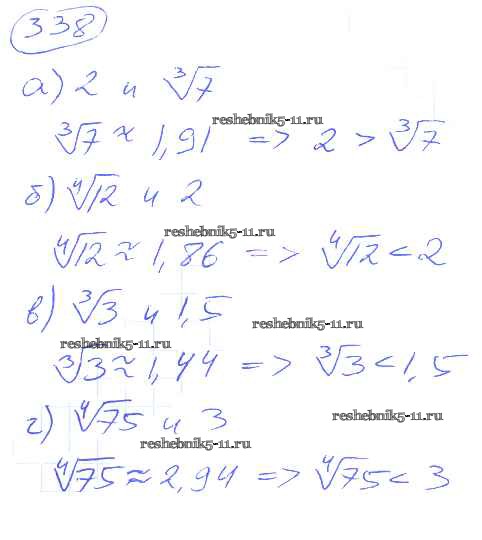 338
а) 2 и ∛7
reshebnik5-11.ru
∛7 ≈ 1,91 => 2 > ∛7
б) ∜12 и 2
reshebnik5-11.ru
∜12 ≈ 1,86 => ∜12 < 2
в) ∛3 и 1,5
reshebnik5-11.ru
reshebnik5-11.ru
∛3 ≈ 1,44 => ∛3 < 1,5
г) ∜75 и 3
reshebnik5-11.ru
reshebnik5-11.ru
∜75 ≈ 2,94 => ∜75 < 3